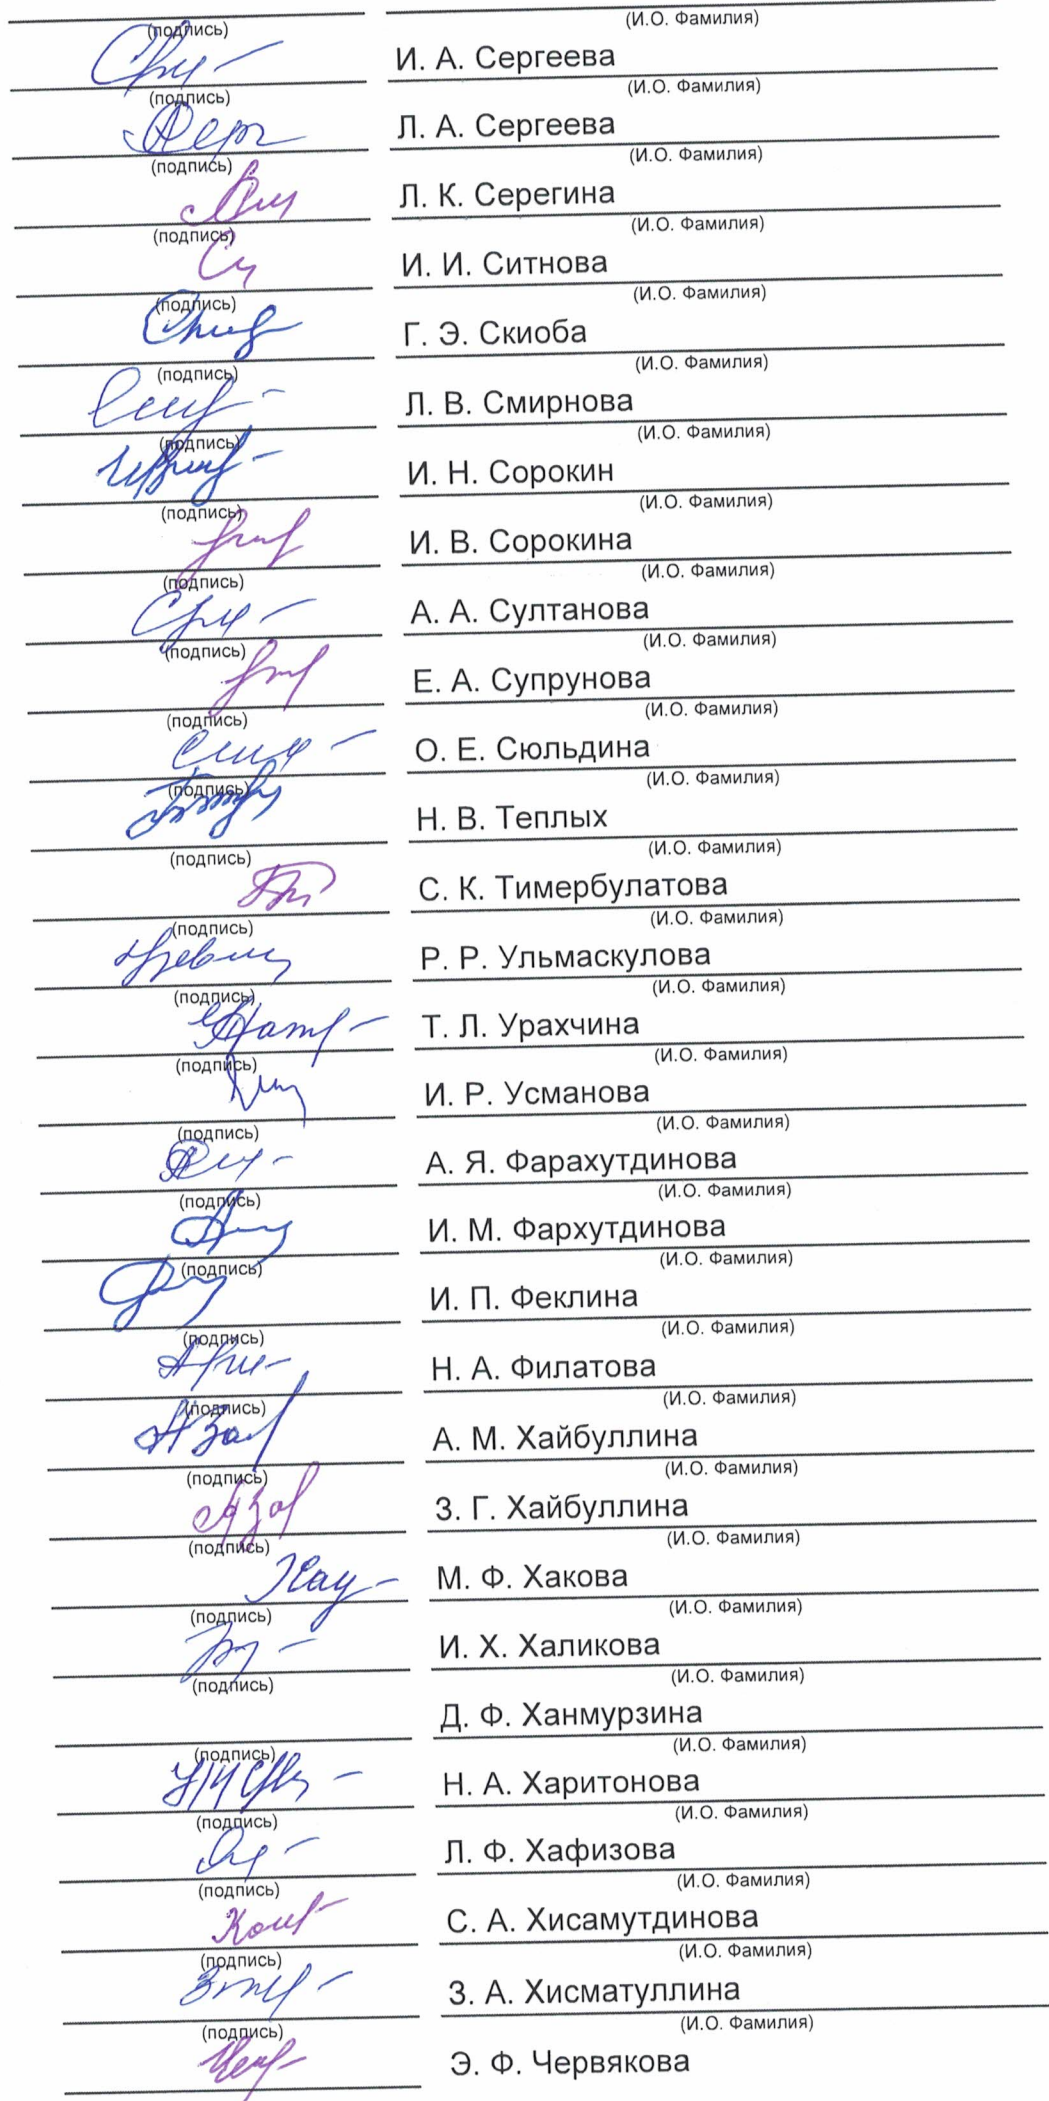 (подпись) (И.О. Фамилия)
И. А. Сергеева
(подпись) (И.О. Фамилия)
Л. А. Сергеева
(подпись) (И.О. Фамилия)
Л. К. Серегина
(подпись) (И.О. Фамилия)
И. И. Ситнова
(подпись) (И.О. Фамилия)
Г. Э. Скиоба
(подпись) (И.О. Фамилия)
Л. В. Смирнова
(подпись) (И.О. Фамилия)
И. Н. Сорокин
(подпись) (И.О. Фамилия)
И. В. Сорокина
(подпись) (И.О. Фамилия)
А. А. Султанова
(подпись) (И.О. Фамилия)
Е. А. Супрунова
(подпись) (И.О. Фамилия)
О. Е. Сюльдина
(подпись) (И.О. Фамилия)
Н. В. Теплых
(подпись) (И.О. Фамилия)
С. К. Тимербулатова
(подпись) (И.О. Фамилия)
Р. Р. Ульмаскулова
(подпись) (И.О. Фамилия)
Т. Л. Урахчина
(подпись) (И.О. Фамилия)
И. Р. Усманова
(подпись) (И.О. Фамилия)
А. Я. Фарахутдинова
(подпись) (И.О. Фамилия)
И. М. Фархутдинова
(подпись) (И.О. Фамилия)
И. П. Феклина
(подпись) (И.О. Фамилия)
Н. А. Филатова
(подпись) (И.О. Фамилия)
А. М. Хайбуллина
(подпись) (И.О. Фамилия)
З. Г. Хайбуллина
(подпись) (И.О. Фамилия)
М. Ф. Хакова
(подпись) (И.О. Фамилия)
И. Х. Халикова
(подпись) (И.О. Фамилия)
Д. Ф. Ханмурзина
(подпись) (И.О. Фамилия)
Н. А. Харитонова
(подпись) (И.О. Фамилия)
Л. Ф. Хафизова
(подпись) (И.О. Фамилия)
С. А. Хисамутдинова
(подпись) (И.О. Фамилия)
З. А. Хисматуллина
(подпись) (И.О. Фамилия)
Э. Ф. Червякова